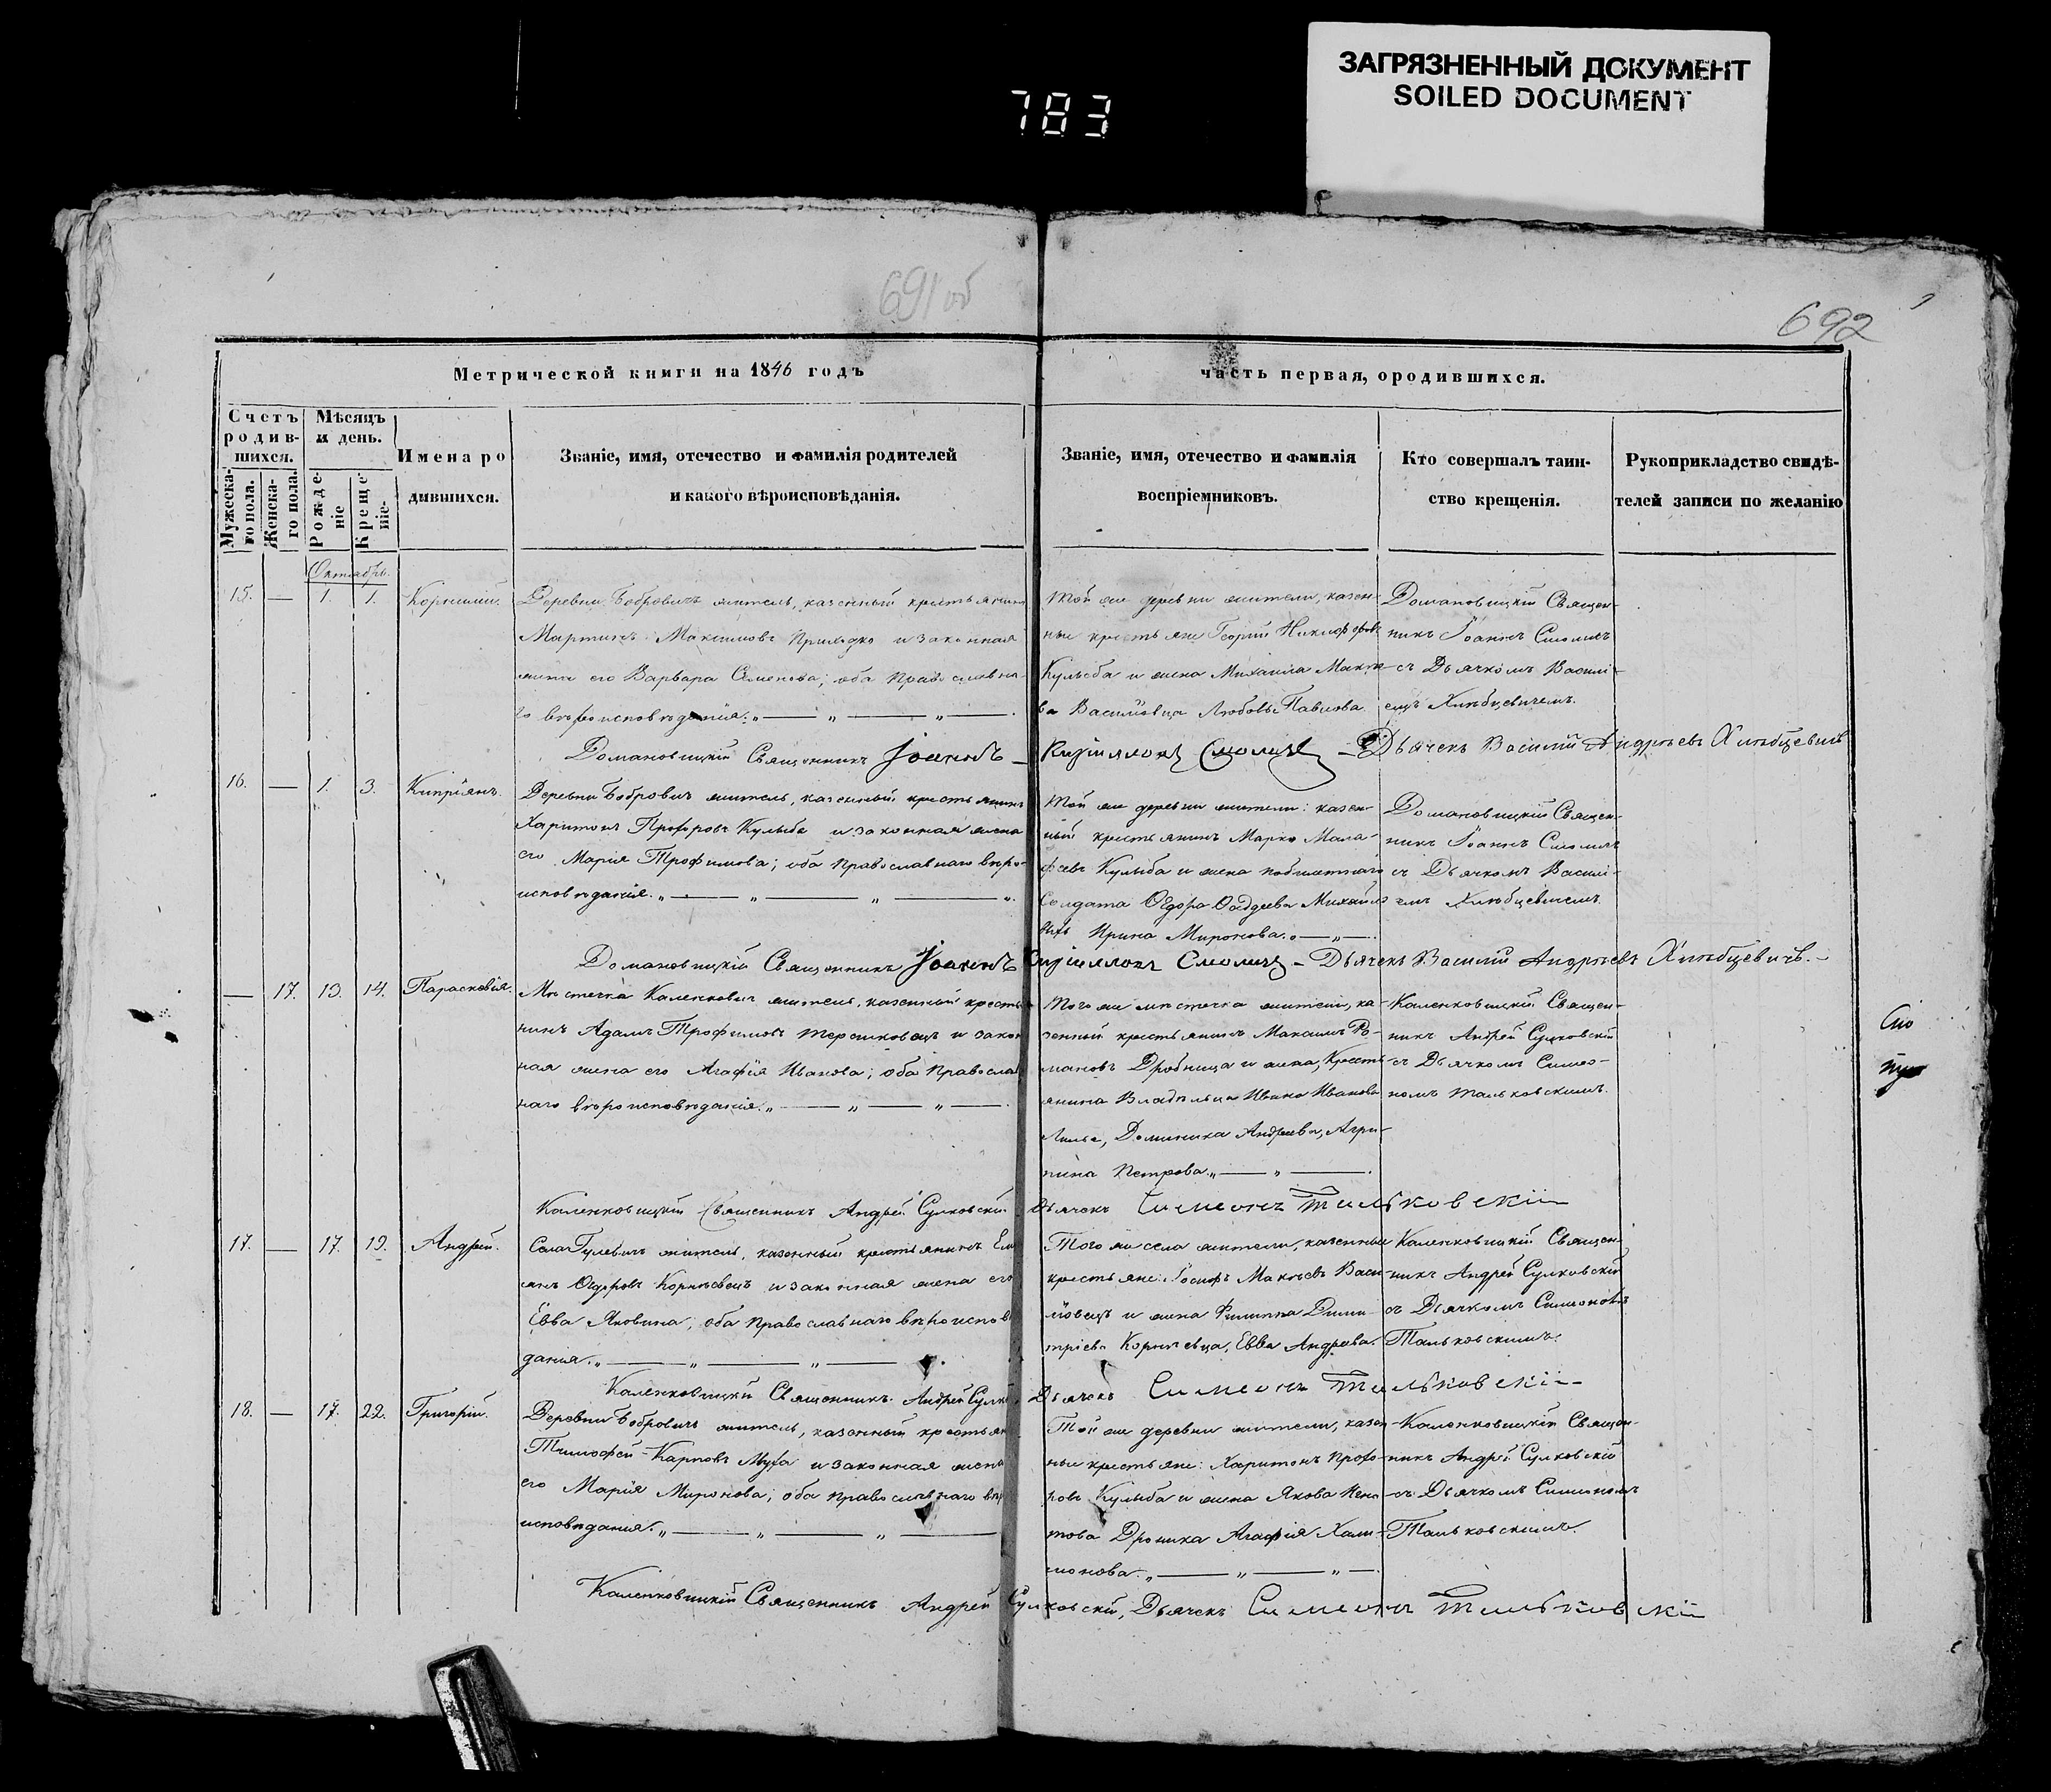 ЗАГРЯЗНЕННЫЙ ДОКУМЕНТ
SOILED DOCUMENT
783
691 об
692
Метрической книги на 1846 годъ
часть первая, ородившихся.
Счетъ родив-шихся.
Мѣсяцъ и день.
Имена ро
дившихся.
Званіе, имя, отечество и фамилія родителей
и какого вѣроисповѣданія.
Званіе, имя, отечество и фамилія
воспріемниковъ.
Кто совершалъ таин-
ство крещенія.
Рукоприкладство свидѣ-
телей записи по желанію
Мужеска-го пола.
Женска-го пола.
Рожде-ніе
Креще-ніе.
Октябрь.
15. — 1. 1. Корнилий.
Деревни Бобровичъ житель, казенный крестьянинъ
Мартинъ Максимовъ Прилодко и законная
жена его Варвара Семенова; оба православна-
го вѣроисповѣданія. „ — „ — „ —
Той же деревни жители, казен-
ные крестьяне Георгій Никифоровъ
Кулыба и жена Михаила
Васильовца Любовь Павлова
Домановицкій Священ-
никъ Іоаннъ Смоличъ
съ Дьячкомъ Васили-
емъ Хлѣбцевичемъ.
Домановицкій Священникъ Іоаннъ Кирилловъ Смоличъ — Дьячекъ Василий Андреевъ Хлѣбцевичъ
16. — 1. 3. Кипріянъ.
Деревни Бобровичъ житель, казенный крестьянинъ
Харитонъ Прохоровъ Кулыба и законная жена
его Марія Трофимова; оба православнаго вѣро-
исповѣданія. „ — „ — „ — „
Той же деревни жители: казен-
ный крестьянинъ Марко Мала-
феевъ Кулыба и жена
Солдата Ѳедора Ѳаддеева
Ирина Миронова. „ — „ —
Домановицкій Священ-
никъ Іоаннъ Смоличъ
съ Дьячкомъ Васили-
емъ Хлѣбцевичемъ.
Домановицкій Священникъ Іоаннъ Кирилловъ Смоличъ — Дьячекъ Василий Андреевъ Хлѣбцевичъ. —
— 17. 13. 14. Параскевія.
Мѣстечка Каленковичъ житель, казенный крестья
нинъ Адамъ Трофимовъ и закон
ная жена его Агафія Иванова; оба православ
наго вѣроисповѣданія. „ — „ — „ —
Того же мѣстечка жители, ка-
зенный крестьянинъ Максимъ Ро-
мановъ Дробница и жена, Кресть-
янина Ивана Иванова
Доминика Андреева, Агри-
пина Петрова. „ — „ —
Каленковицкій Священ-
никъ Андрей Сулковскій
съ Дьячкомъ Симео-
номъ Тальковскимъ.
Каленковицкій Священникъ Андрей Сулковскій. Дьячекъ Симеонъ Тальковскій
17. — 17. 19. Андрей.
Села Гулевичъ житель, казенный крестьянинъ Ем
янъ Ѳедоровъ Корнѣевецъ и законная жена его
Евва Яковина; оба православнаго вѣроисповѣ
данія. „ — „ — „ —
Того же села жители, казенные
крестьяне: Іосифъ Макѣевъ Васи-
льовецъ и жена Филиппа Дими-
тріева Корнѣевца, Евва Андреева.
Каленковицкій Священ-
никъ Андрей Сулковскій
съ Дьячкомъ Симеономъ
Тальковскимъ.
Каленковицкій Священникъ Андрей Сулков Дьячекъ Симеонъ Тальковскій
18. — 17. 22. Григорій.
Деревни Бобровичъ житель, казенный крестьян
Тимофей Карповъ Муха и законная жена
его Марія Миронова; оба православнаго вѣр
исповѣданія. „ — „ — „ —
Той же деревни жители, казен-
ные крестьяне: Харитонъ Прохо-
ровъ Кулыба и жена Якова
Дроника Агафія Хали-
монова. „ — „ — „ —
Каленковицкій Священ-
никъ Андрей Сулковскій
съ Дьячкомъ Симеономъ
Тальковскимъ.
Каленковицкій Священникъ Андрей Сулковскій, Дьячекъ Симеонъ Тальковскій